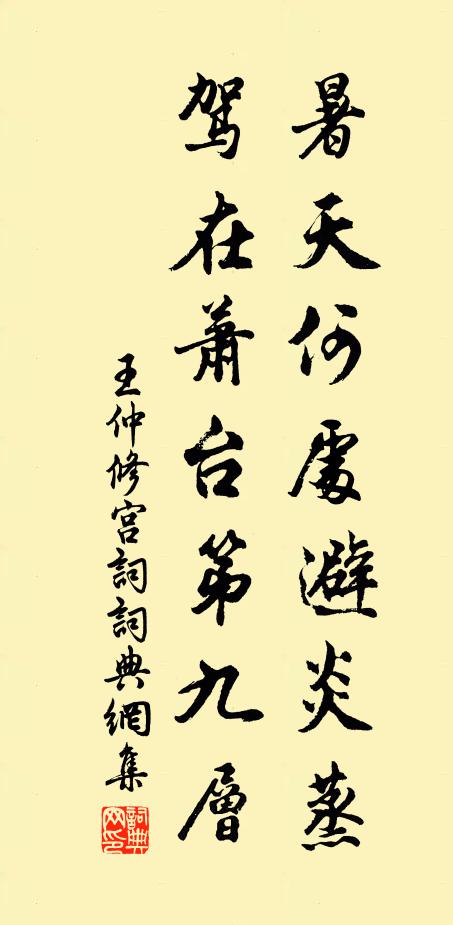 暑天何處避炎蒸
駕在蕭台第九層
王仲修宮詞詞典網集
詞典網印